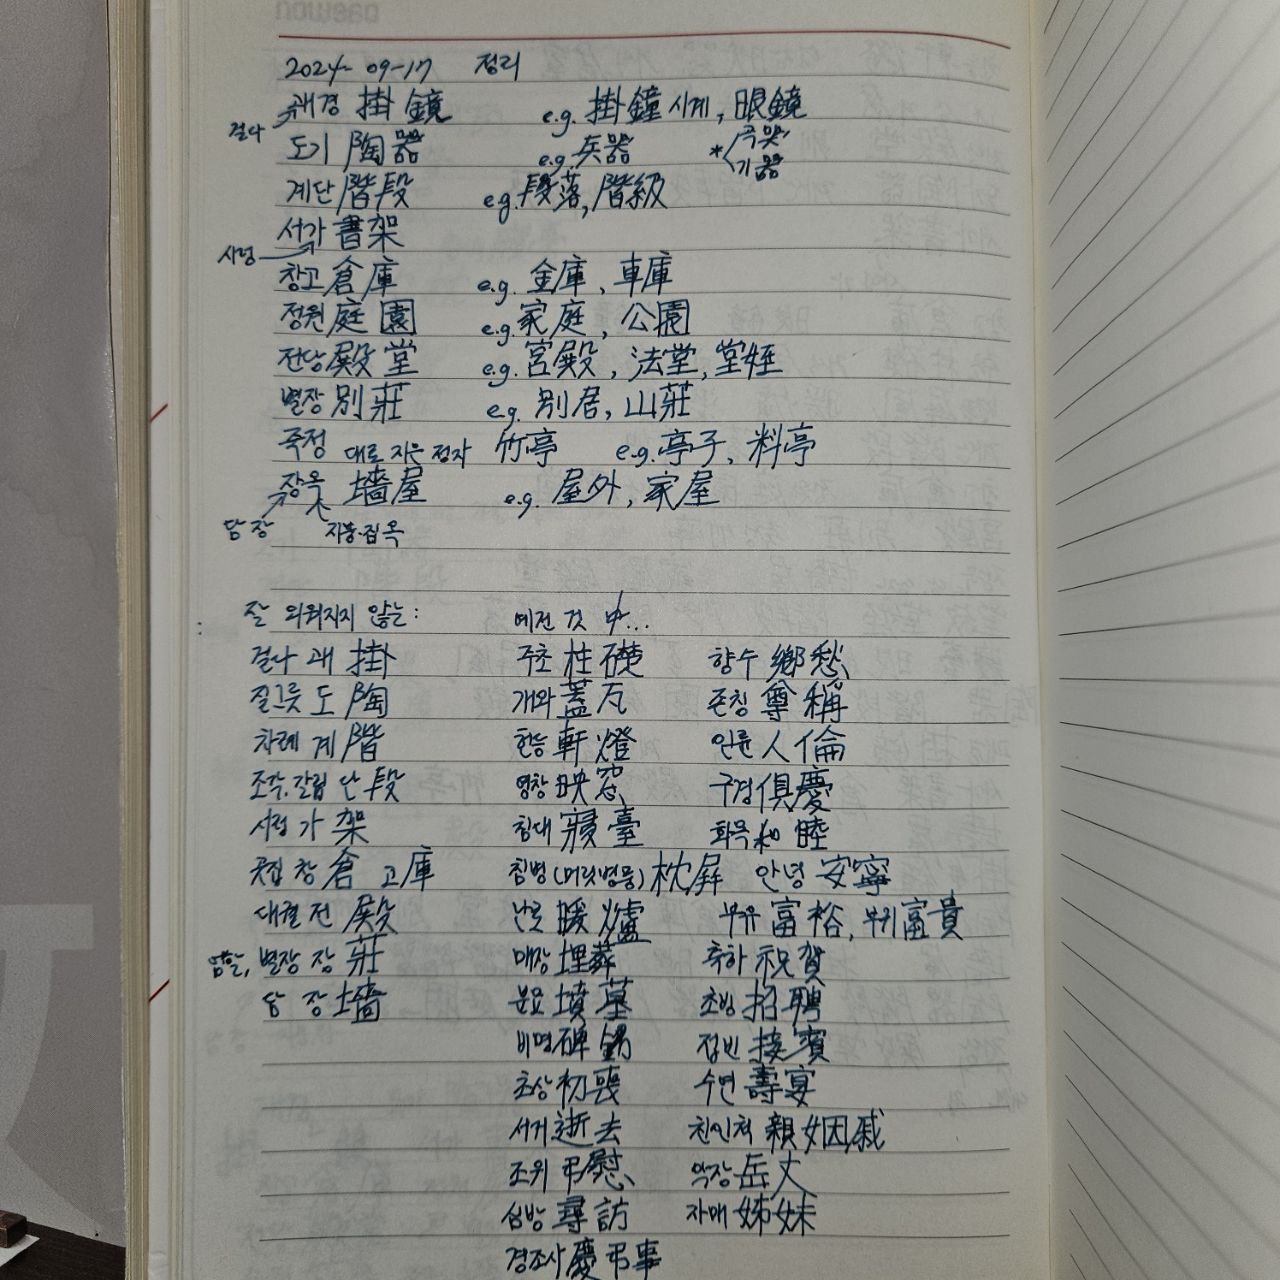 2024-09-17 정리
괘경 掛鏡 e.g. 掛鐘시계, 眼鏡
걸다
도기 陶器 e.g. 兵器 * 哭 기器
계단 階段 e.g. 段落, 階級
서가 書架
시렁
창고 倉庫 e.g. 金庫, 車庫
정원 庭園 e.g. 家庭, 公園
전당 殿堂 e.g. 宮殿, 法堂, 堂姪
별장 別莊 e.g. 別居, 山莊
죽정 대로 지은 정자 竹亭 e.g. 亭子, 料亭
장옥 墻屋 e.g. 屋外, 家屋
담 장 지붕·집 옥
잘 외워지지 않는: 예전 것 中...
걸다 괘 掛 주초 柱礎 향수 鄕愁
질그릇 도 陶 개와 蓋瓦 존칭 尊稱
차례 계 階 헌등 軒燈 인륜 人倫
조각, 갈림 단 段 영창 映窓 구경 俱慶
시렁 가 架 침대 寢臺 화목 和睦
곳집 창 倉 고 庫 침병(머릿병풍) 枕屛 안녕 安寧
대궐 전 殿 난로 暖爐 부유 富裕, 부귀 富貴
엄할, 별장 장 莊 매장 埋葬 축하 祝賀
담 장 墻 분묘 墳墓 초빙 招聘
비명 碑銘 접빈 接賓
초상 初喪 수연 壽宴
서거 逝去 친인척 親姻戚
조위 弔慰 악장 岳丈
심방 尋訪 자매 姊妹
경조사 慶弔事